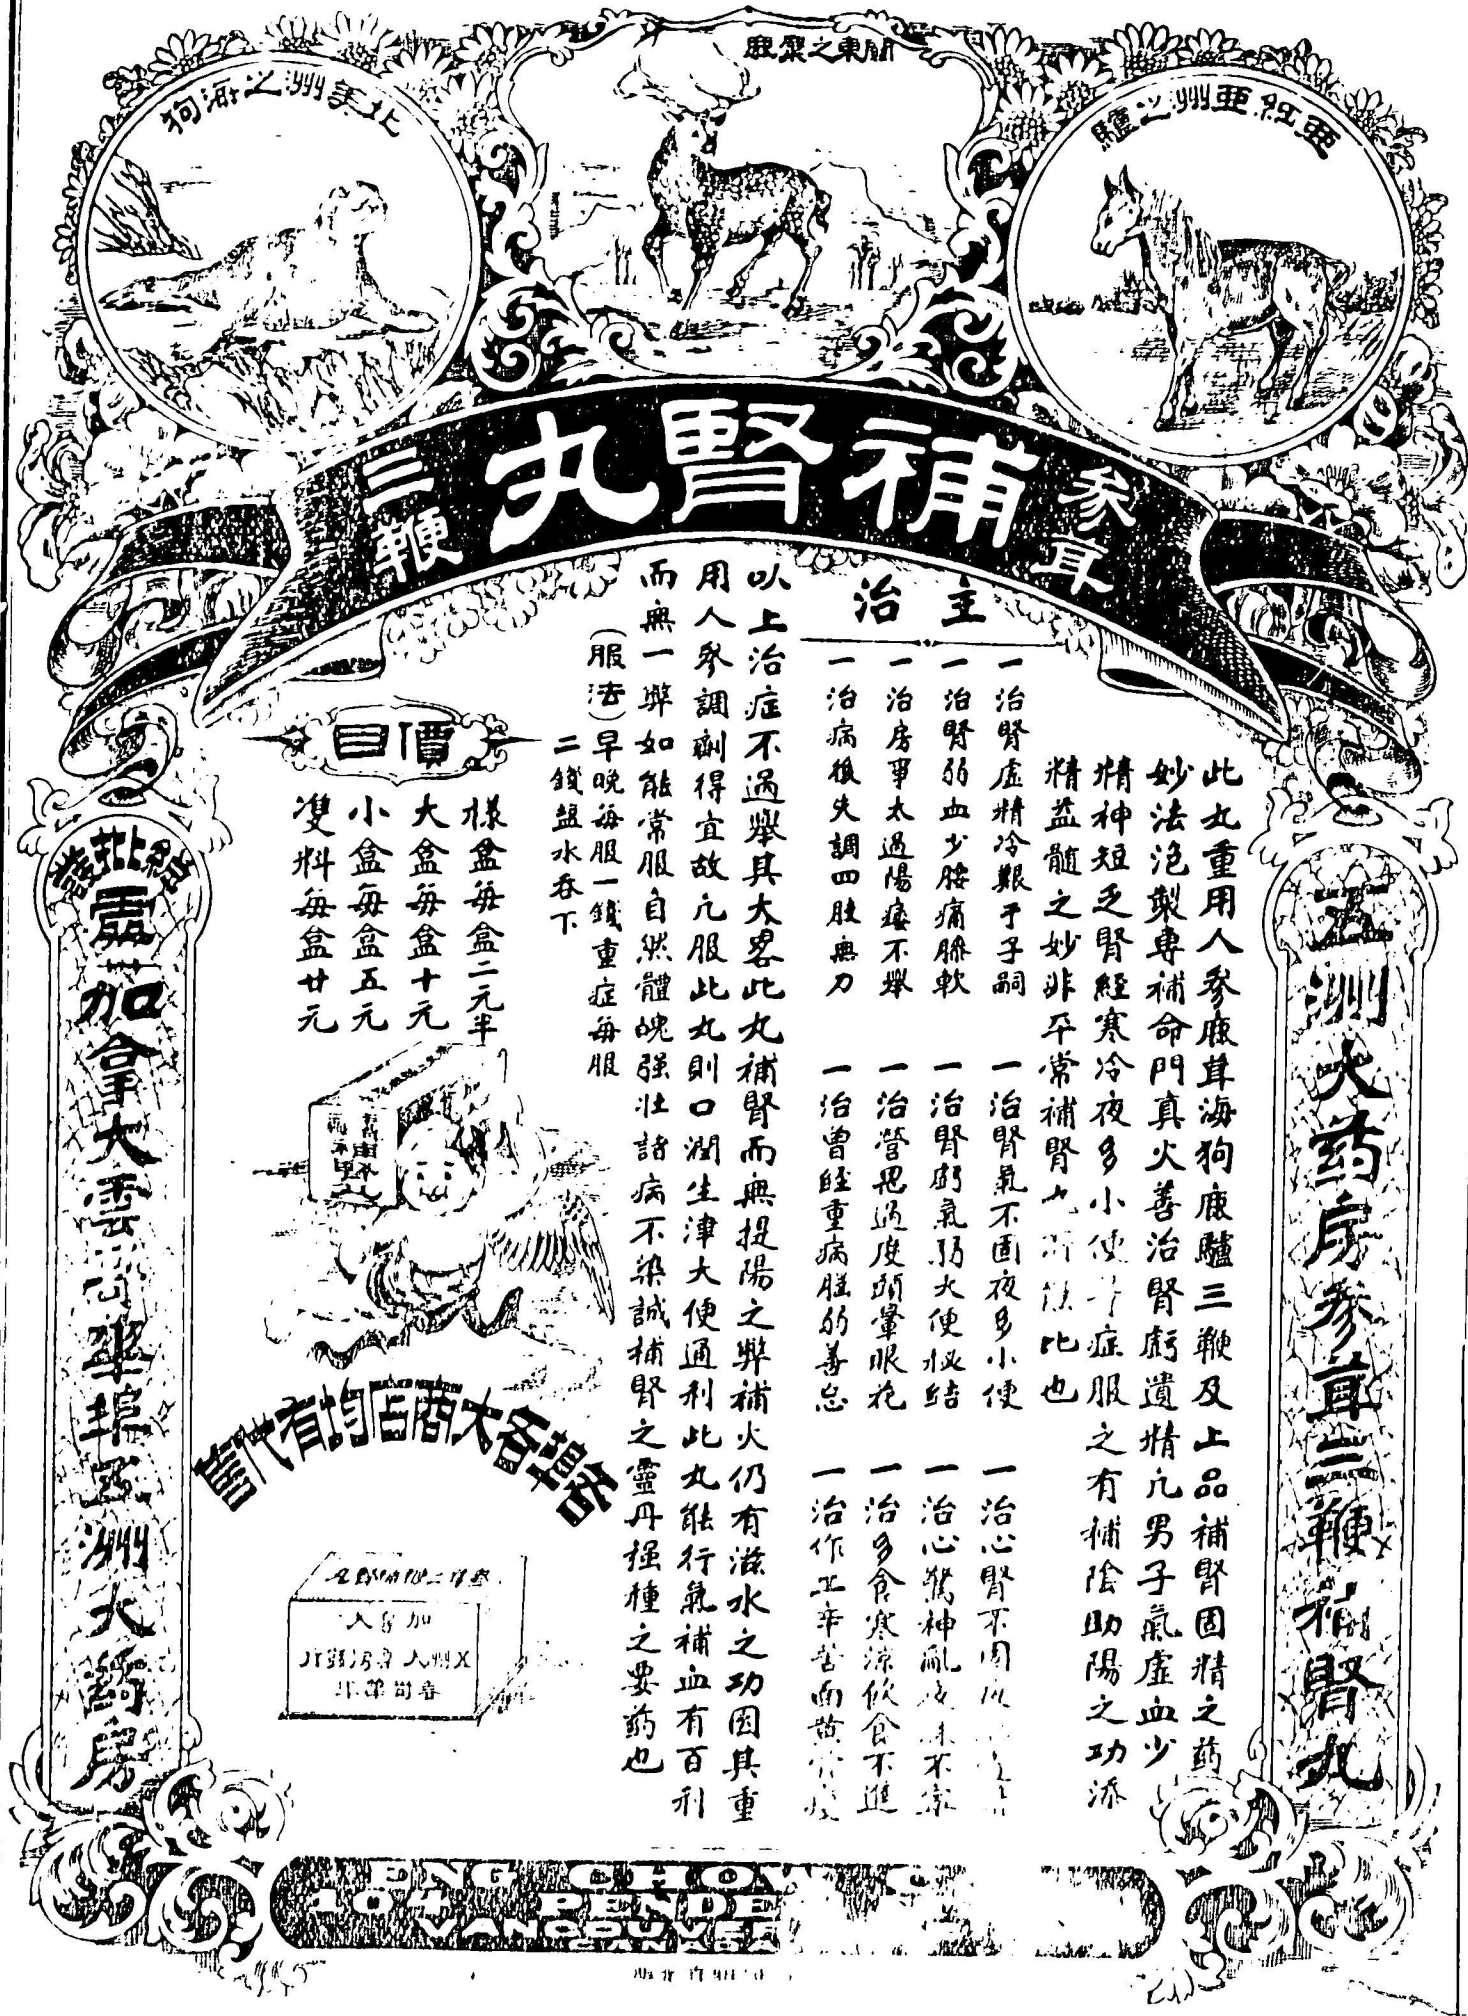 關東之麋鹿
亞細亞州之驢
北美洲之海狗
參茸
補腎丸
三鞭
五洲大药房參茸三鞭補腎丸
此丸重用人參鹿茸海狗鹿驢三鞭及上品補腎固精之药
妙法泡製專補命門真火善治腎虧遺精凢男子氣虛血少
精神短乏腎經寒冷夜多小便等症服之有補陰助陽之功添
精益髓之妙非平常補腎丸所能比也
主治
一治腎虛精冷艱于子嗣
一治腎弱血少腰痛膝軟
一治房事太過陽痿不舉
一治病後失調四肢無力
一治腎氣不固夜多小便
一治腎虧氣弱大便秘結
一治營思過度頭暈眼花
一治曾經重病胜弱善忘
一治心腎不固
一治心驚神亂 不寧
一治多食寒涼飲食不進
一治作工辛苦面黃
以上治症不過舉其大畧此丸補腎而無提陽之弊補火仍有滋水之功因其重
用人參調劑得宜故凢服此丸則口潤生津大便通利此丸能行氣補血有百利
而無一弊如能常服自然體魄强壯諸病不染誠補腎之靈丹種種之要葯也
(服法)早晚每服一錢重症每服
二錢盐水吞下
價目
樣盒每盒二元半
大盒每盒十元
小盒每盒五元
雙料每盒廿元
各埠各大商店均有代售
總批發處
加拿大雲 華埠五洲大葯房
ENG CHO
PENDE
VANCOUVER